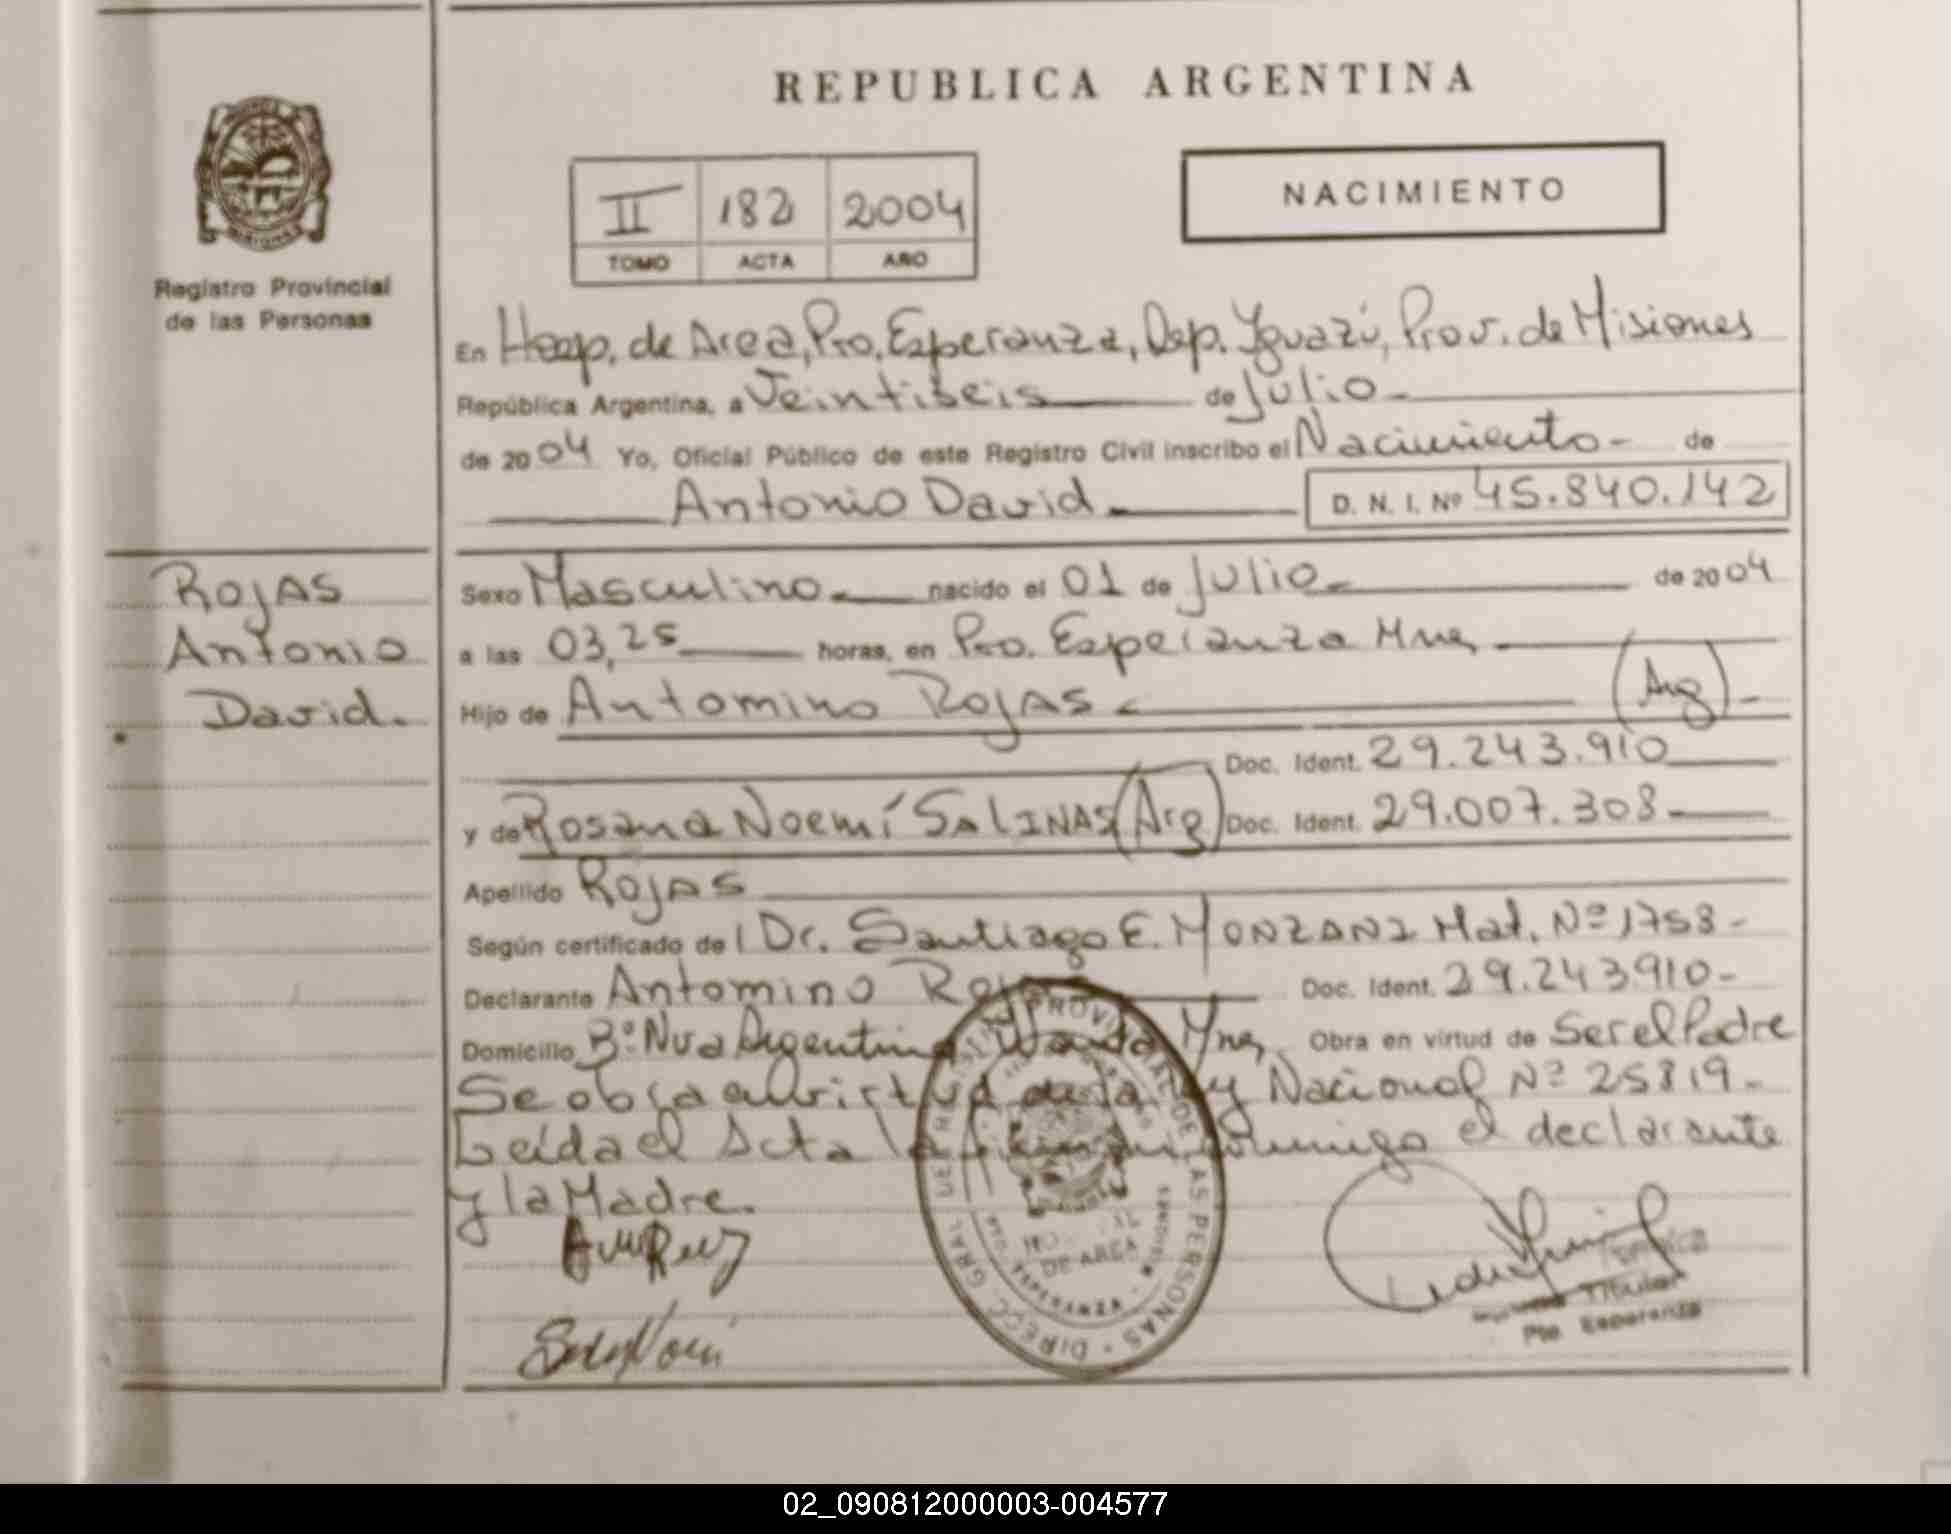 REPUBLICA ARGENTINA
II 182 2004
TOMO ACTA AÑO
NACIMIENTO
MISIONES
Registro Provincial
de las Personas
En Hosp. de Area, Pto. Esperanza, Dep. Yguazú, Prov. de Misiones
República Argentina, a Veintiseis de Julio
de 2004 Yo, Oficial Público de este Registro Civil inscribo el Nacimiento - de
Antonio David D. N. I. Nº 45.840.142
ROJAS
Antonio
David.
Sexo Masculino nacido el 01 de Julio de 2004
a las 03,25 horas, en Pto. Esperanza Mnes
Hijo de Antomino ROJAS (Arg)
Doc. Ident. 29.243.910
y de Rosana Noemí SALINAS (Arg) Doc. Ident. 29.007.308
Apellido ROJAS
Según certificado de l Dr. Santiago E. MONZANI Mat. Nº 1758-
Declarante Antomino Rojas Doc. Ident. 29.243910-
Domicilio Bº Nva Argentina Wanda Mnes Obra en virtud de Ser el Padre
Se obra en virtud de la Ley Nacional Nº 25819-
Leída el Acta la firman conmigo el declarante
y la Madre.
DIRECC. GRAL. DEL REGISTRO PROVINCIAL DE LAS PERSONAS
HOSPITAL
DE AREA
Titular
Pto. Esperanza
02_090812000003-004577